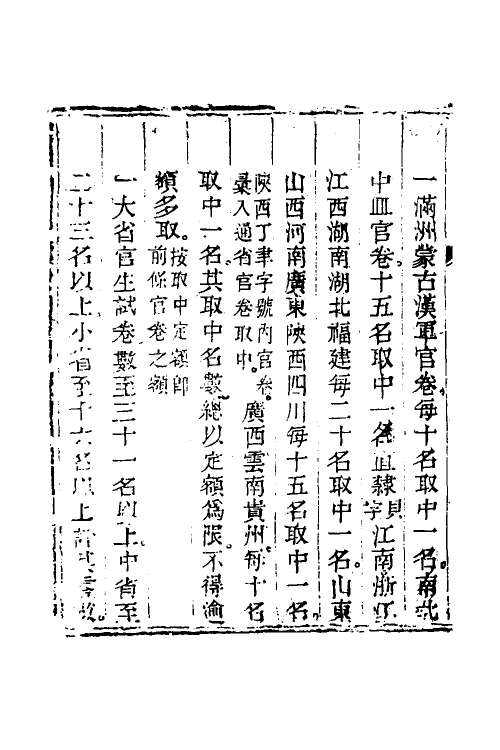 一滿洲蒙古漢軍官卷每十名取中一名南北
中皿官卷十五名取中一名直隸貝字江南浙江
江西湖南湖北福建每二十名取中一名山東
山西河南廣東陝西四川每十五名取中一名
陝西丁聿字號內官卷彙入通省官卷取中廣西雲南貴州每十名
取中一名其取中名數總以定額爲限不得渝
額多取按取中定額卽前條官卷之額
一大省官生試卷數至三十一名以上中省至
二十三名以上小省至十六名以上